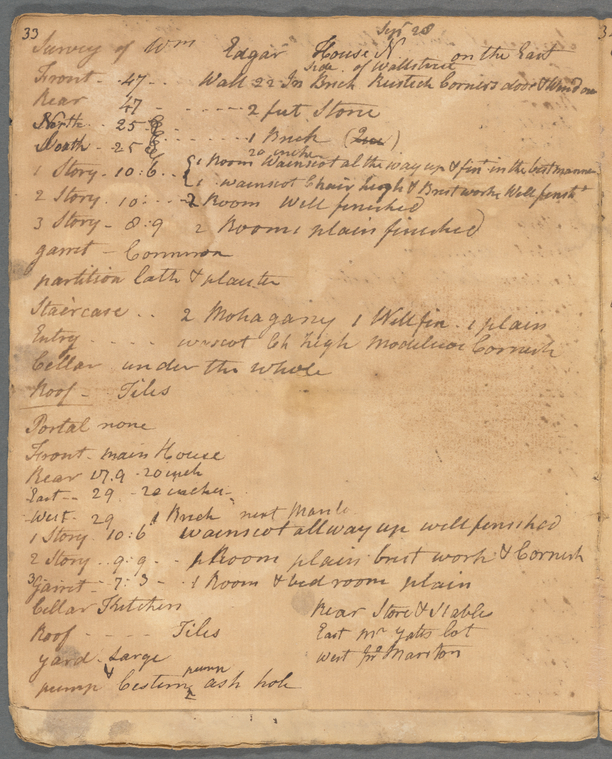 33
Sept 28
Survey of Wm Edgar House N
Side of Wallstreet on the East
Front - 47 - . Wall 22 In Brick Rustick Corners door & Window
Rear 47 - - - - - 2 feet Stone
North - 25 6
South - 25 6 - - - - 1 Brick
20 inches
1 Story - 10 : 6 . . 1 Room Wainscot al the way up & fin in the best manner
1 wainscot Chair high & Brest worke Well finsht
2 Story . 10 : - - - 2 Room Well finished
3 Story - 8 : 9 2 Rooms plain finished
garret - Common
partition Lath & plaster
Staircase . . 2 Mohagany 1 Well fin . 1 plain
Entry . - - - . Ch high Modelion Cornesh
Cellar under the whole
Roof - Tiles
Portal none
Front - main House
Rear 17.9 - 20 inch
East - - 29 - 20 inches
West - 29 1 Brick next
1 Story 10 : 6 wainscot all way up well finished
2 Story - 9 : 9 - 1 Room plain brest work & Cornesh
3 Garret - 7 : 3 - . 1 Room & bed room plain
Cellar Kitchen
Rear Store & Stables
Roof - - - - - Tiles
East Mr Yatts Lot
yard - Large
West
pump & Cestern pump ash hole